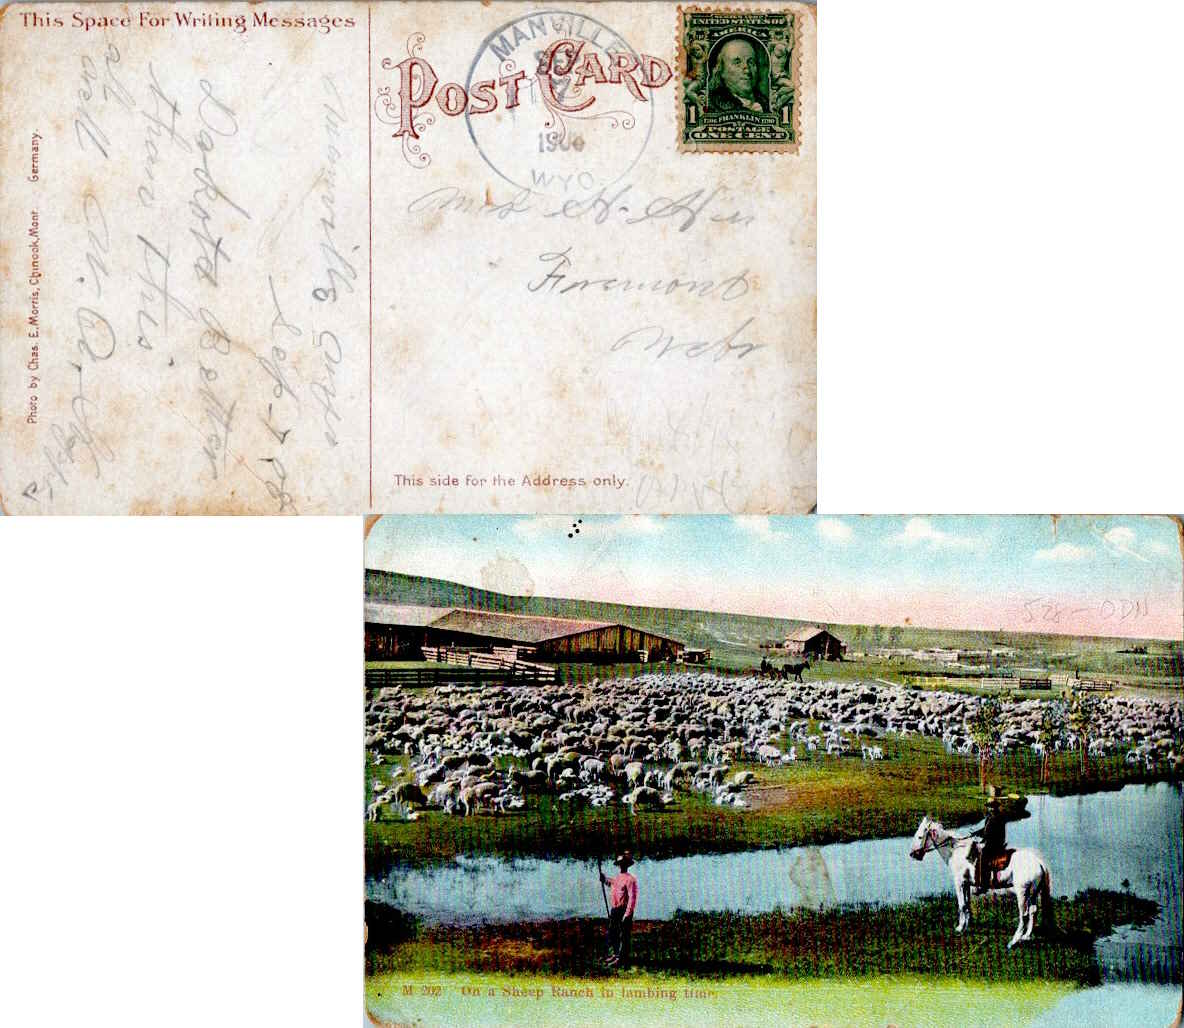 This Space For Writing Messages
POST CARD
MANVILLE
SEP
7
1908
WYO.
SERIES 1902
UNITED STATES OF
AMERICA
1 1706 FRANKLIN 1790 1
POSTAGE
ONE CENT
Manville Wyo
Sep-7 08
Dackota Better
than this
all well
Photo by Chas. E. Morris, Chinook, Mont. Germany.
Mrs H.
Fremont
Nebr
This side for the Address only.
528-ODH
M 202 On a Sheep Ranch in lambing time.